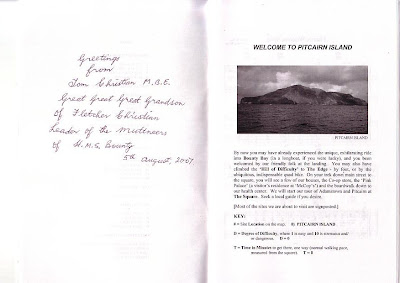 Greetings
from
Tom Christian M.B.E.
Great Great Great Grandson
of Fletcher Christian
Leader of the Mutineers
of H.M.S. Bounty
5th August, 2007
WELCOME TO PITCAIRN ISLAND
PITCAIRN ISLAND
By now you may have already experienced the unique, exhilarating ride
into Bounty Bay (in a longboat, if you were lucky), and you been
welcomed by our friendly folk at the landing. You may also have
climbed the "Hill of Difficulty" to The Edge - by foot, or by the
ubiquitous, indispensable quad bike. On your trek down main street to
the square, you will see a few of our houses, the Co-op store, the 'Pink
Palace' (a visitor's residence at 'McCoy's') and the boardwalk down to
our health center. We will start our tour of Adamstown and Pitcairn at
The Square. Seek a local guide if you desire.
[Most of the sites we are about to visit are signposted.]
KEY:
# = Site Location on the map. 0) PITCAIRN ISLAND
D = Degree of Difficulty, where 1 is easy and 10 is strenuous and/
or dangerous. D = 0
T = Time in Minutes to get there, one way (normal walking pace,
measured from the square) T = 0